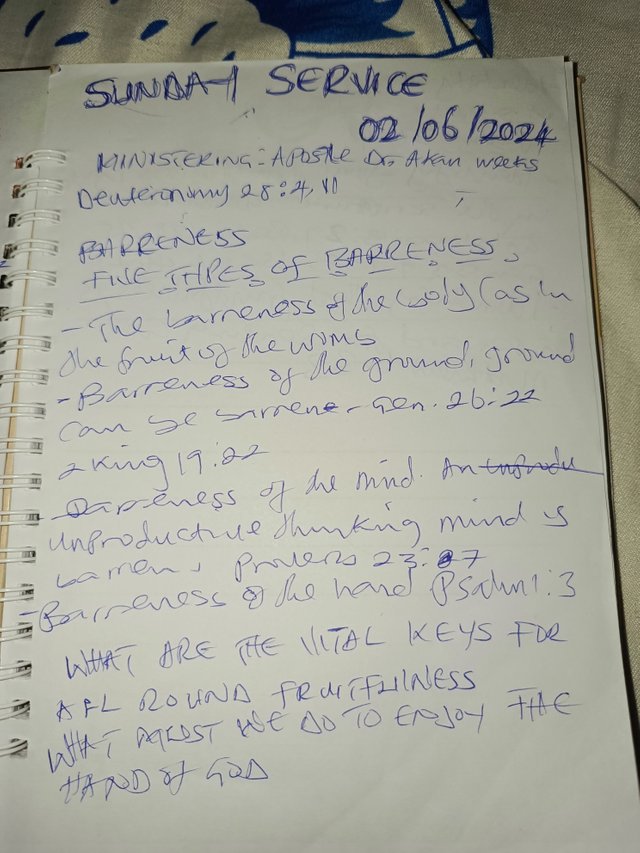 SUNDAY SERVICE
02/06/2024
MINISTERING:- Apostle Dr. Akan weeks
Deuteronomy 28:4, 11
BARRENESS
FIVE TYPES OF BARRENESS.
- The barreness of the body (as in
the fruit of the womb
- Barreness of the ground, ground
can be barrene - Gen. 26:22
2 king 19:22
- Barreness of the mind. An
unproductive thinking mind is
barren, Proverbs 23:7
- Barreness of the hand Psalm 1:3
WHAT ARE THE VITAL KEYS FOR
ALL ROUND FRUITFULNESS
WHAT MUST WE DO TO ENJOY THE
HAND OF GOD